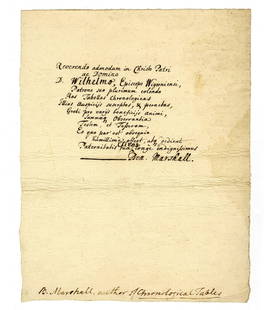 Reverendo admodum in Christo Patri
ac Domino
D. Wilhelmo, Episcopo Wigorniensi,
Patrono suo plurimum colendo
Has Tabulas Chronologicas
Illius Auspicijs susceptas, & peractas,
Grati pro varijs beneficijs animi,
Summæ Observantiæ
Testem, et Tesseram,
Ea qua par est obsequio
humillime offert,
Paternitatis longe indignissimus
Ben. Marshall.
B. Marshall, author of Chronological Tables